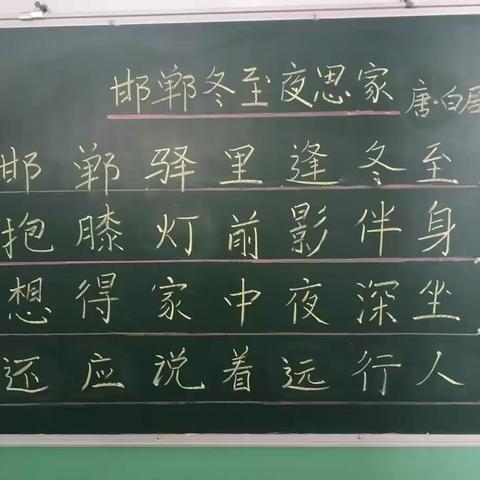 邯郸冬至夜思家 唐·白居
邯郸驿里逢冬至
抱膝灯前影伴身
想得家中夜深坐
还应说着远行人